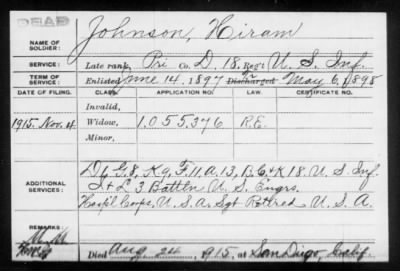 DEAD
NAME OF SOLDIER: Johnson, Hiram
SERVICE: Late rank, Pri Co. D, 18, Reg't U. S. Inf.
TERM OF SERVICE: Enlisted June 14, 1897 Discharged May 6, 1898
DATE OF FILING. CLASS. APPLICATION NO. LAW. CERTIFICATE NO.
Invalid,
1915. Nov. 4 Widow, 1.055376 R.E.
Minor,
D 6, G. 8, K 9, F. 11, A. 13, B, C, & K 18. U. S. Inf.
ADDITIONAL SERVICES: I & L 3 Battln U. S. Engrs.
Hospl Corps, U. S. A. Sgt Retired U. S. A.
REMARKS:
Died Aug 24, 1915, at San Diego, Calif.